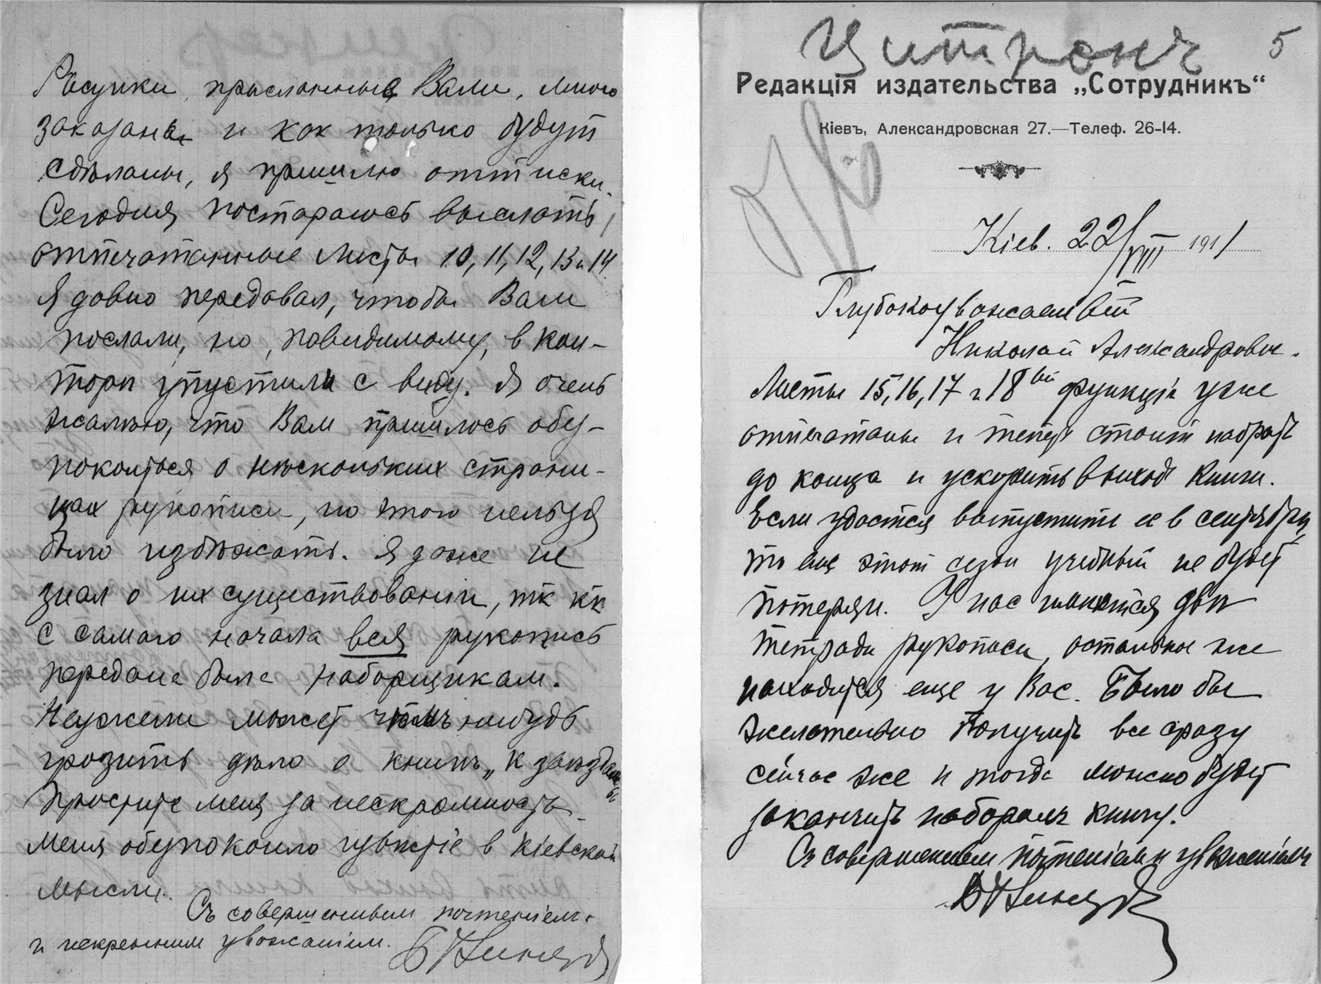 Рисунки, присланные Вами, мною
заказаны и как только будут
сдѣланы, я пришлю оттиски.
Сегодня постараюсь выслать
отпечатанные листы 10, 11, 12, 13 и 14
Я давно передавал, чтобы Вам
послали, но, повидимому, в кон-
торѣ упустили с виду. Я очень
жалѣю, что Вам пришлось обез-
покоиться о нѣскольких страни-
цах рукописи, но этого нельзя
было избѣжать. Я даже не
знал о их существованіи, тк кк
с самого начала вся рукопись
передана была наборщикам.
Неужели может чѣмъ нибудь
грозить дѣло о книгѣ „К звѣздам“
Простите меня за нескромность.
Меня обезпокоило извѣстіе в Кіевской
Мысли.
Съ совершенным почтеніем
и искренним уваженіем.
Цитронъ
5
Редакція издательства „Сотрудникъ“
Кіевъ, Александровская 27.—Телеф. 26-14.
Кіев. 22/VIII 1911
Глубокоуважаемый
Николай Александрович.
Листы 15, 16, 17 и 18ый функціи уже
отпечатаны и теперь стоит набрать
до конца и ускорить выход книги.
Если удастся выпустить ее в сентябрѣ,
то еще этот сезон учебный не будет
потерян. У нас имѣются двѣ
тетради рукописи, остальное же
находится еще у Вас. Было бы
желательно получить все сразу
сейчас же и тогда можно будет
закончить набором книгу.
Съ совершенным почтеніем и уваженіемъ